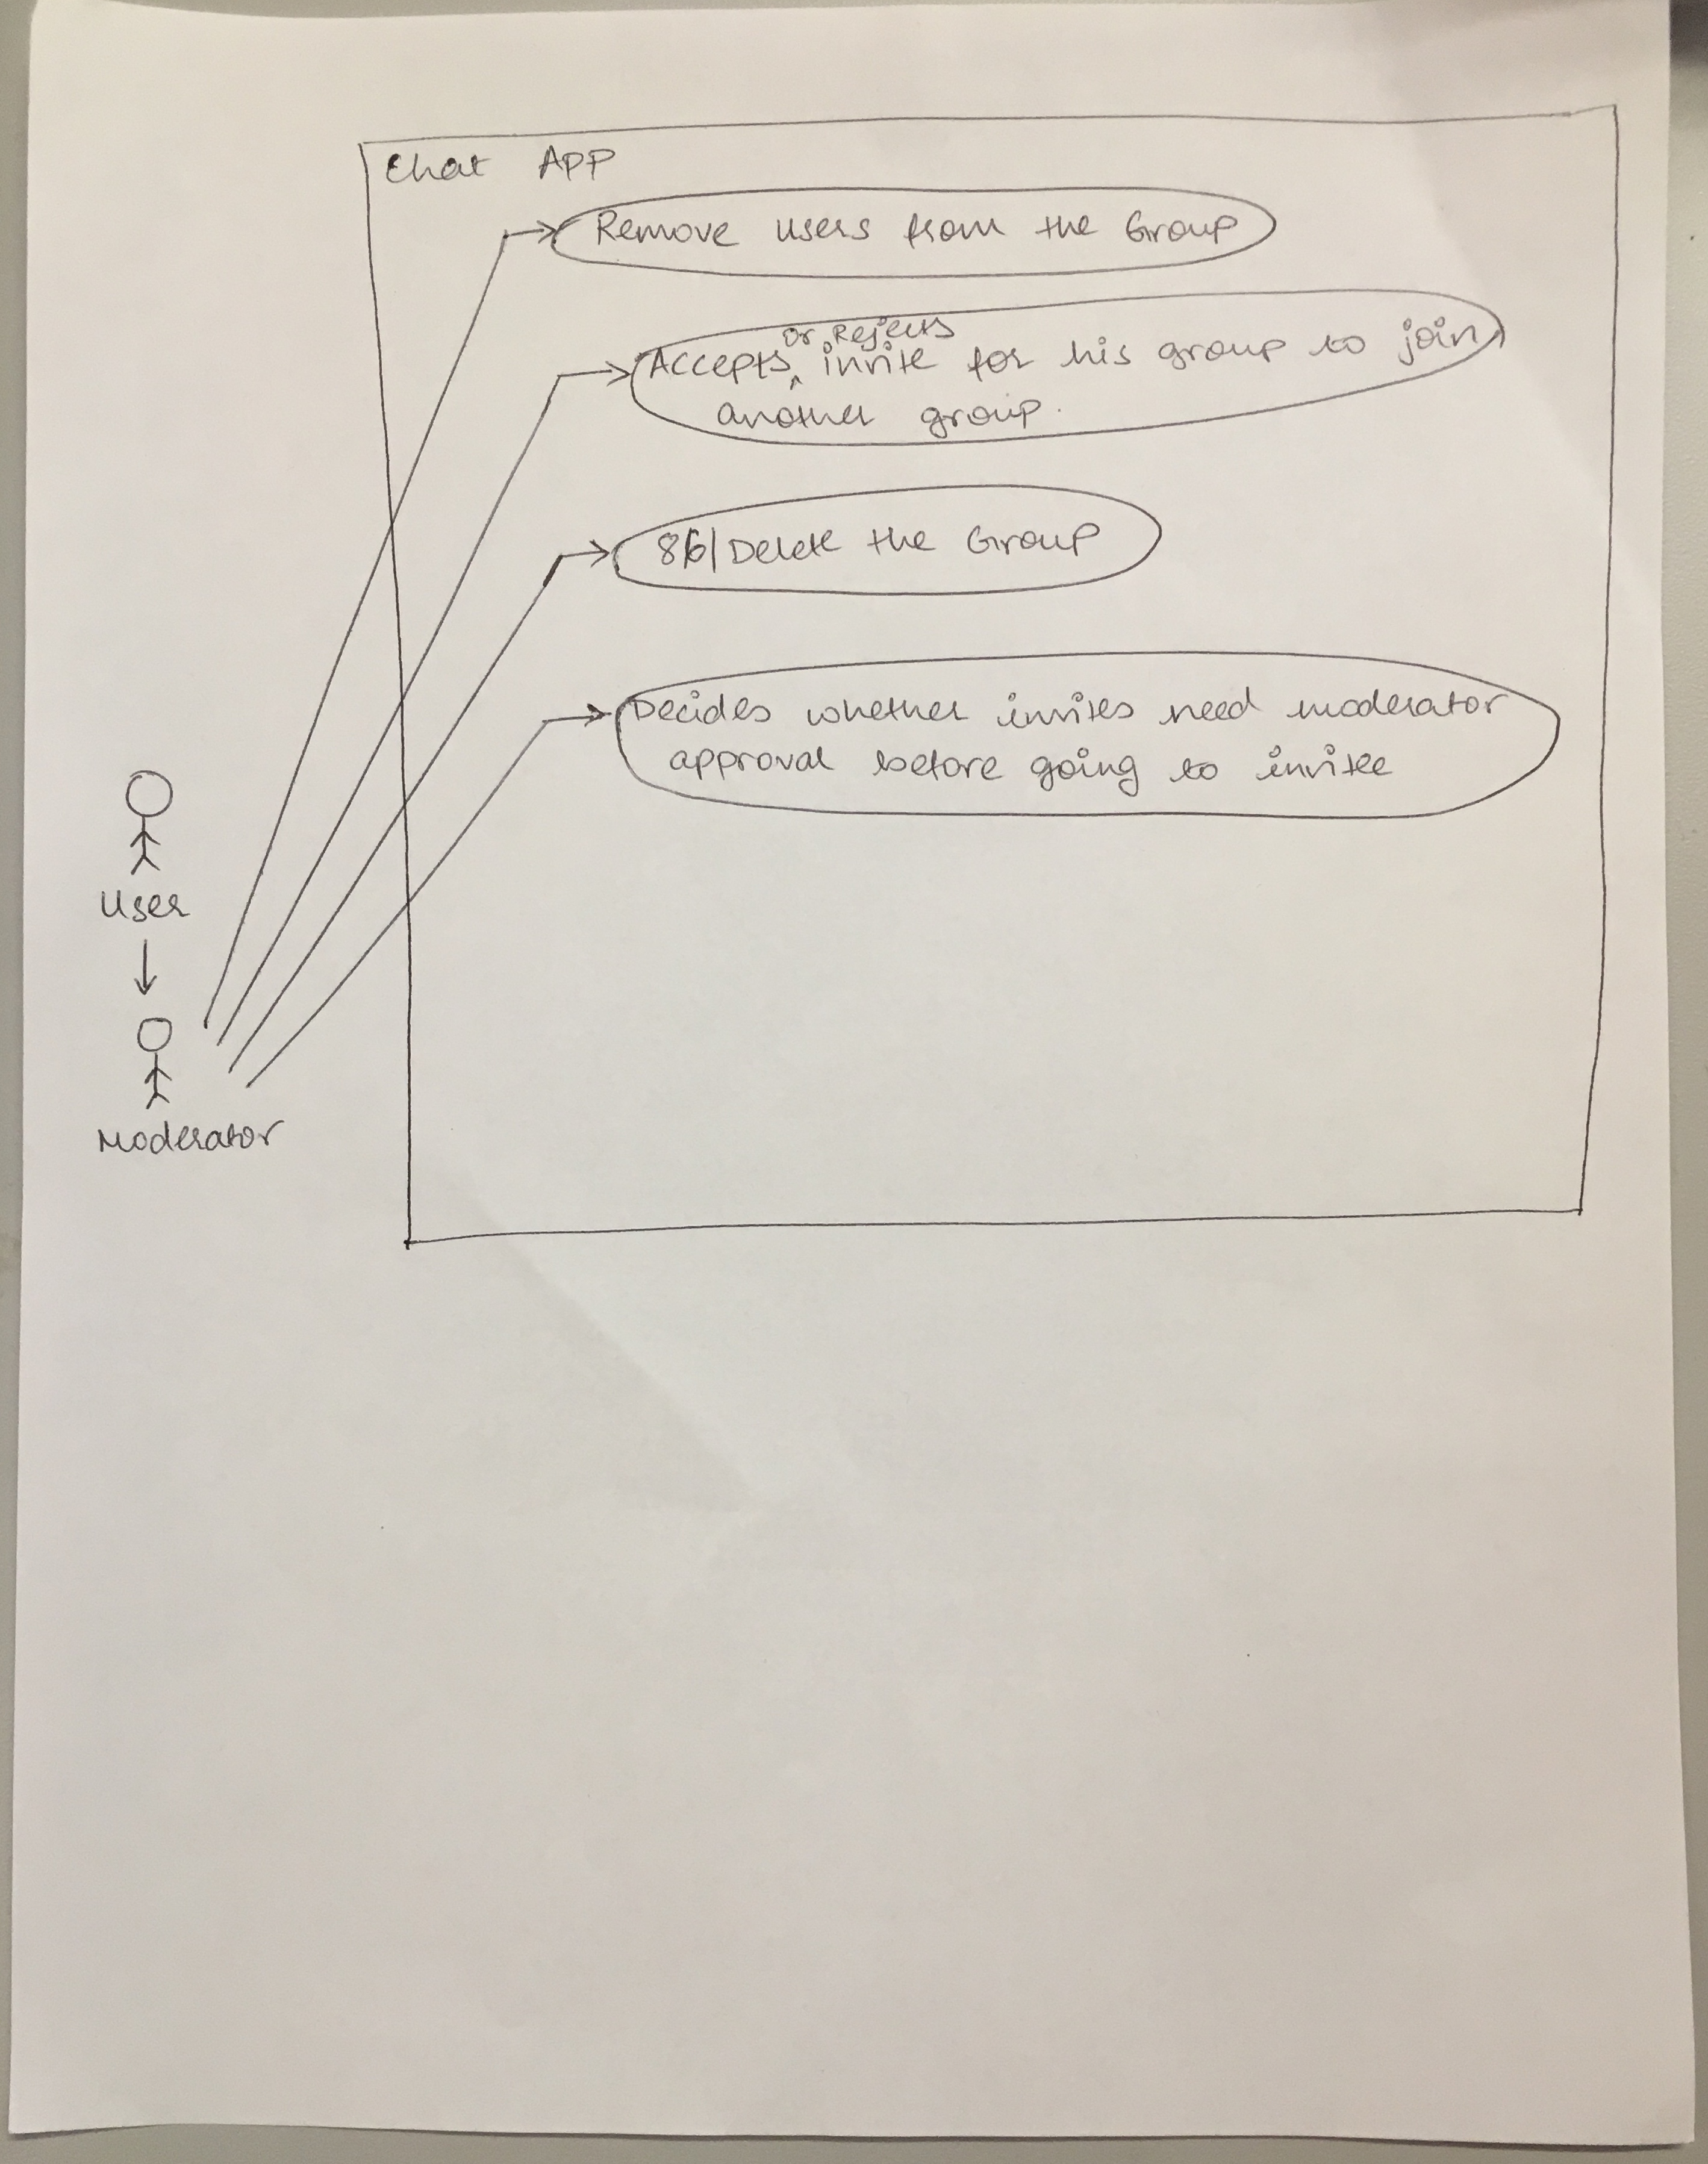 Chat APP
Remove users from the Group
or Rejects
Accepts ^ invite for his group to join
another group.
86/Delete the Group
Decides whether invites need moderator
approval before going to invitee
User
Moderator